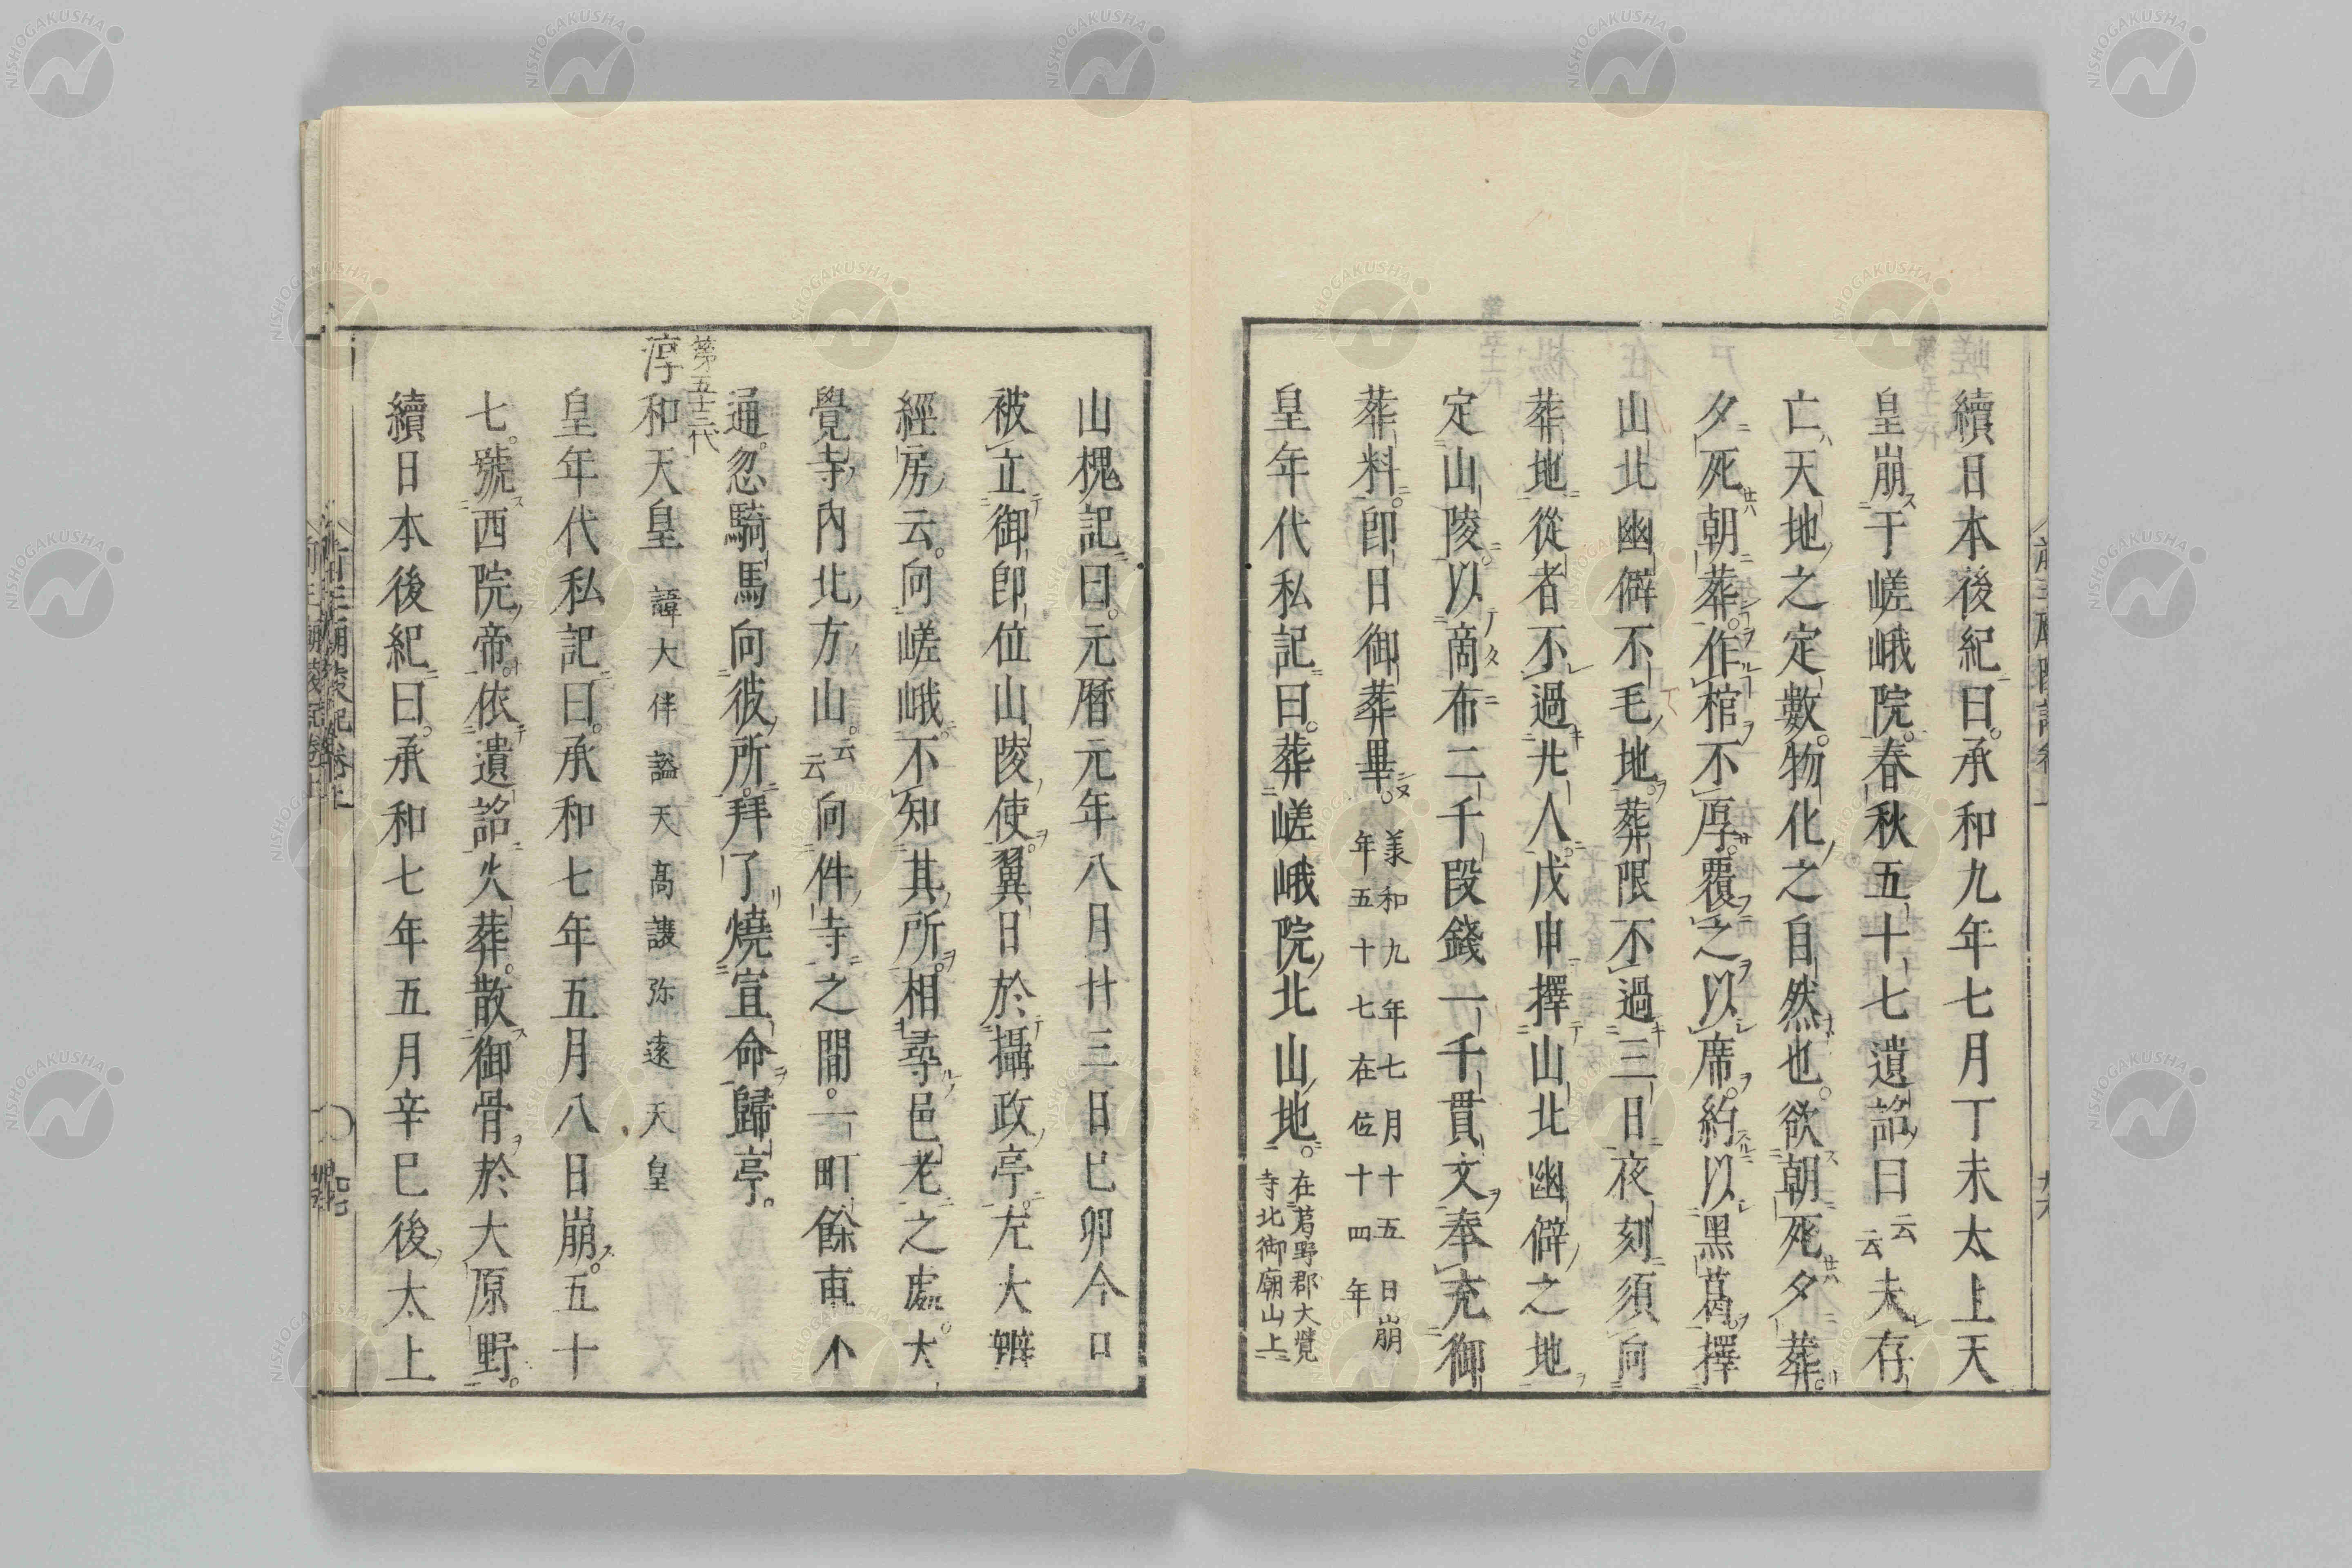 續日本後紀曰承和九年七月丁未太上天
皇崩于嵯峨院春秋五十七遺詔曰云云夫存
亡天地之定數物化之自然也欲朝死夕葬
夕死朝葬作棺不厚覆之以席約以黑葛擇
山北幽僻不毛地葬限不過三日夜刻須向
葬地從者不過廿人戊申擇山北幽僻之地
定山陵以商布二千段錢一千貫文奉充御
葬料即日御葬畢 羕和九年七月十五日崩
年五十七在位十四年
皇年代私記曰葬嵯峨院北山地 在葛野郡大覺
寺北御廟山上
山槐記曰元曆元年八月廿三日巳卯今日
被立御卽位山陵使翼日於攝政亭左大辨
經房云向嵯峨不知其所相尋邑老之處大
覺寺內北方山云云向件寺之間一町餘東小
通忽騎馬向彼所拜了燒宣命歸亭
第五十三代
淳和天皇 諱大伴謚天高讓弥遠天皇
皇年代私記曰承和七年五月八日崩五十
七號西院帝依遺詔火葬散御骨於大原野
續日本後紀曰承和七年五月辛巳後太上
NISHOGAKUSHA